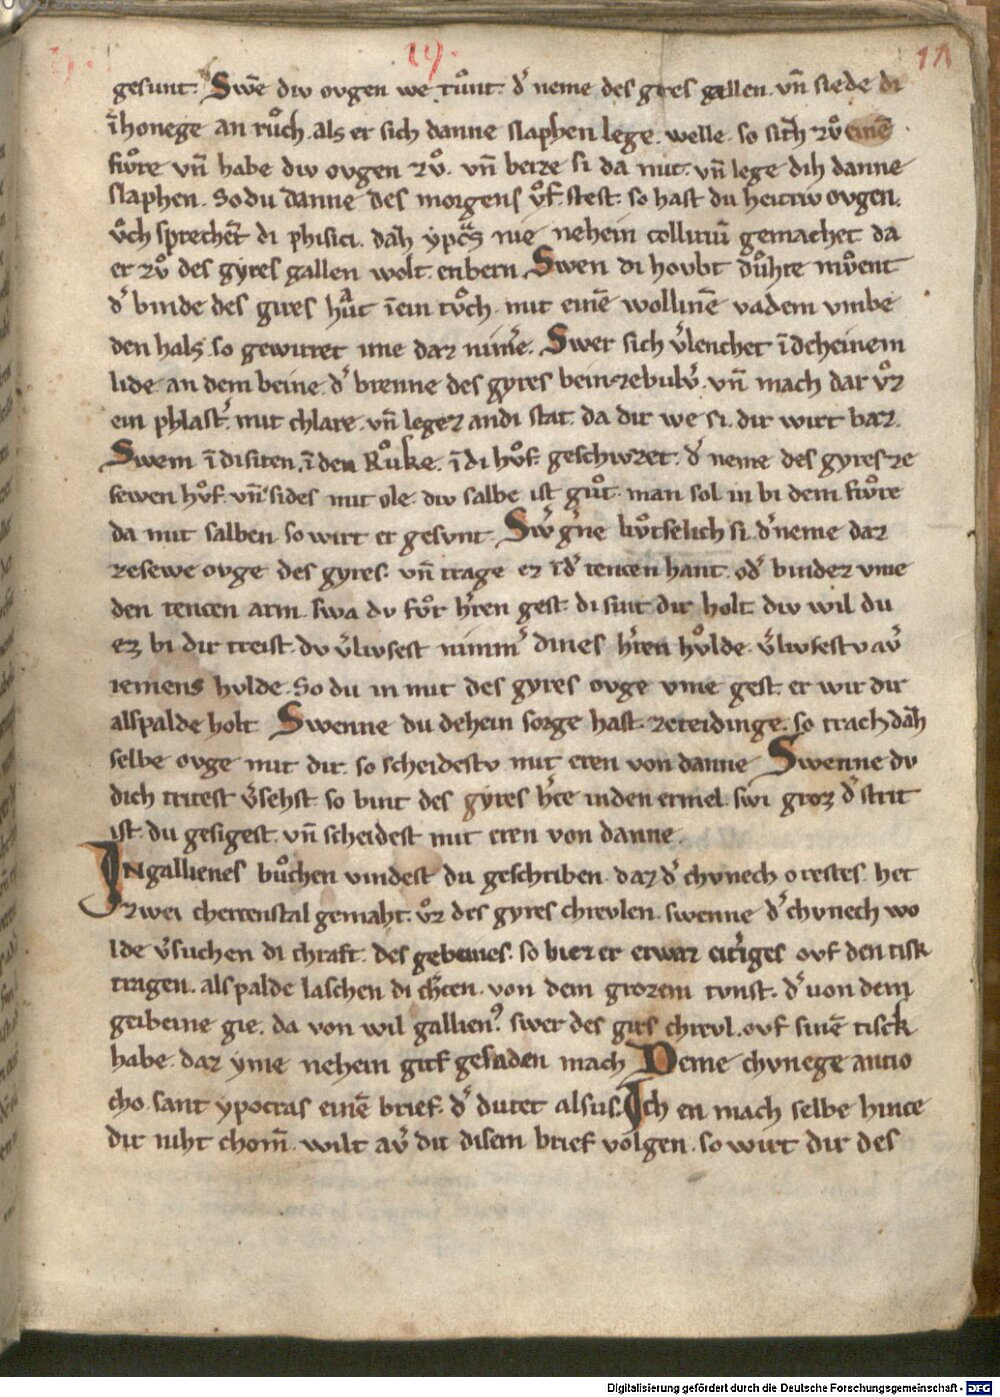 19.
17
gesunt. Swē diu ovgen we tůnt. d᷑ neme des gires gallen. vn̄ siede di
ī honege an růch. als er sich danne slaphen lege. welle. so sitʒh zv̊ einē
fiv̊re vn̄ habe div ovgen zv̊. vn̄ beize si da mit. vn̄ lege dih danne
slaphen. So du danne des morgens v̊f stest. so hast du heitriv ovgen.
v̊ch sprechēt di phisici. daʒh ypc᷑s nie nehein colliriū gemachet da
er zv̊ des gyres gallen wolt enbern. Swen di hovbt důhte niv̊ent
d᷑ binde des gires hůt īein tv̊ch. mit einē wollinē vadem vmbe
den hals. so gewirret ime daz nim̄e. Swer sich v᷑lenchet īdcheinem
lide. an dem beine. d᷑ brenne des gyres bein zebulv᷑. vn̄ mach dar v̊z
ein phlast᷑. mit chlare. vn̄ legez andi stat. da dir we si. dir wirt baz.
Swem ī disiten. īden Růke. ī di hv̊f. geschwzet. d᷑ neme des gyres ze
sewen hv̊f. vn̄ sides mit ole. div salbe ist gůt. man sol in bi dem fiv̊re
da mit salben. so wirt er gesvnt. Sw᷑ g᷑ne liv̊tselich si. d᷑ neme daz
zesewe ovge des gyres. vn̄ trage ez īd᷑ tencen hant. od᷑ bindez vme
den tencen arm. swa dv fv̊r h᷑ren gest. di sint dir holt. diw wil du
ez bi dir treist. dv v᷑liusest nimm᷑ dines h᷑ren hv̊lde. v᷑liusestv av᷑
iemens hvlde. So du in mit des gyres ovge vme gest. er wir dir
alspalde holt. Swenne du dehein sorge hast. zeteidinge. so trach daʒh
selbe ovge mit dir. so scheidestv mit eren von danne. Swenne dv
dich tritest v᷑sehst. so bint des gyres h᷑ce inden ermel. swi groz d᷑ strit
ist. du gesigest. vn̄ scheidest mit eren von danne.
INgallienes bůchen vindest du geschriben. daz d᷑ chvnech orestes. het
zwei chettenstal gemaht. v̊z des gyres chrevlen. swenne d᷑ chvnech wo
lde v᷑suchen di chraft. des gebeines. so biez er etwaz eit᷑iges ovf den tisk
tragen. alspalde laschen di ch᷑cen. von dem grozem tvnst. d᷑ uon dem
geibeine gie. da von wil gallien᷒. swer des girs chrevl. ovf sinē tisck
habe. daz yme nehein gift gesaden mach. Deme chvnege antio
cho. sant ypocras einē brief. d᷑ dutet alsus. Ich en mach selbe hince
dir niht chom̄. wilt av᷑ du disem brief volgen. so wirt dir des
Digitalisierung gefördert durch die Deutsche Forschungsgemeinschaft - DFG